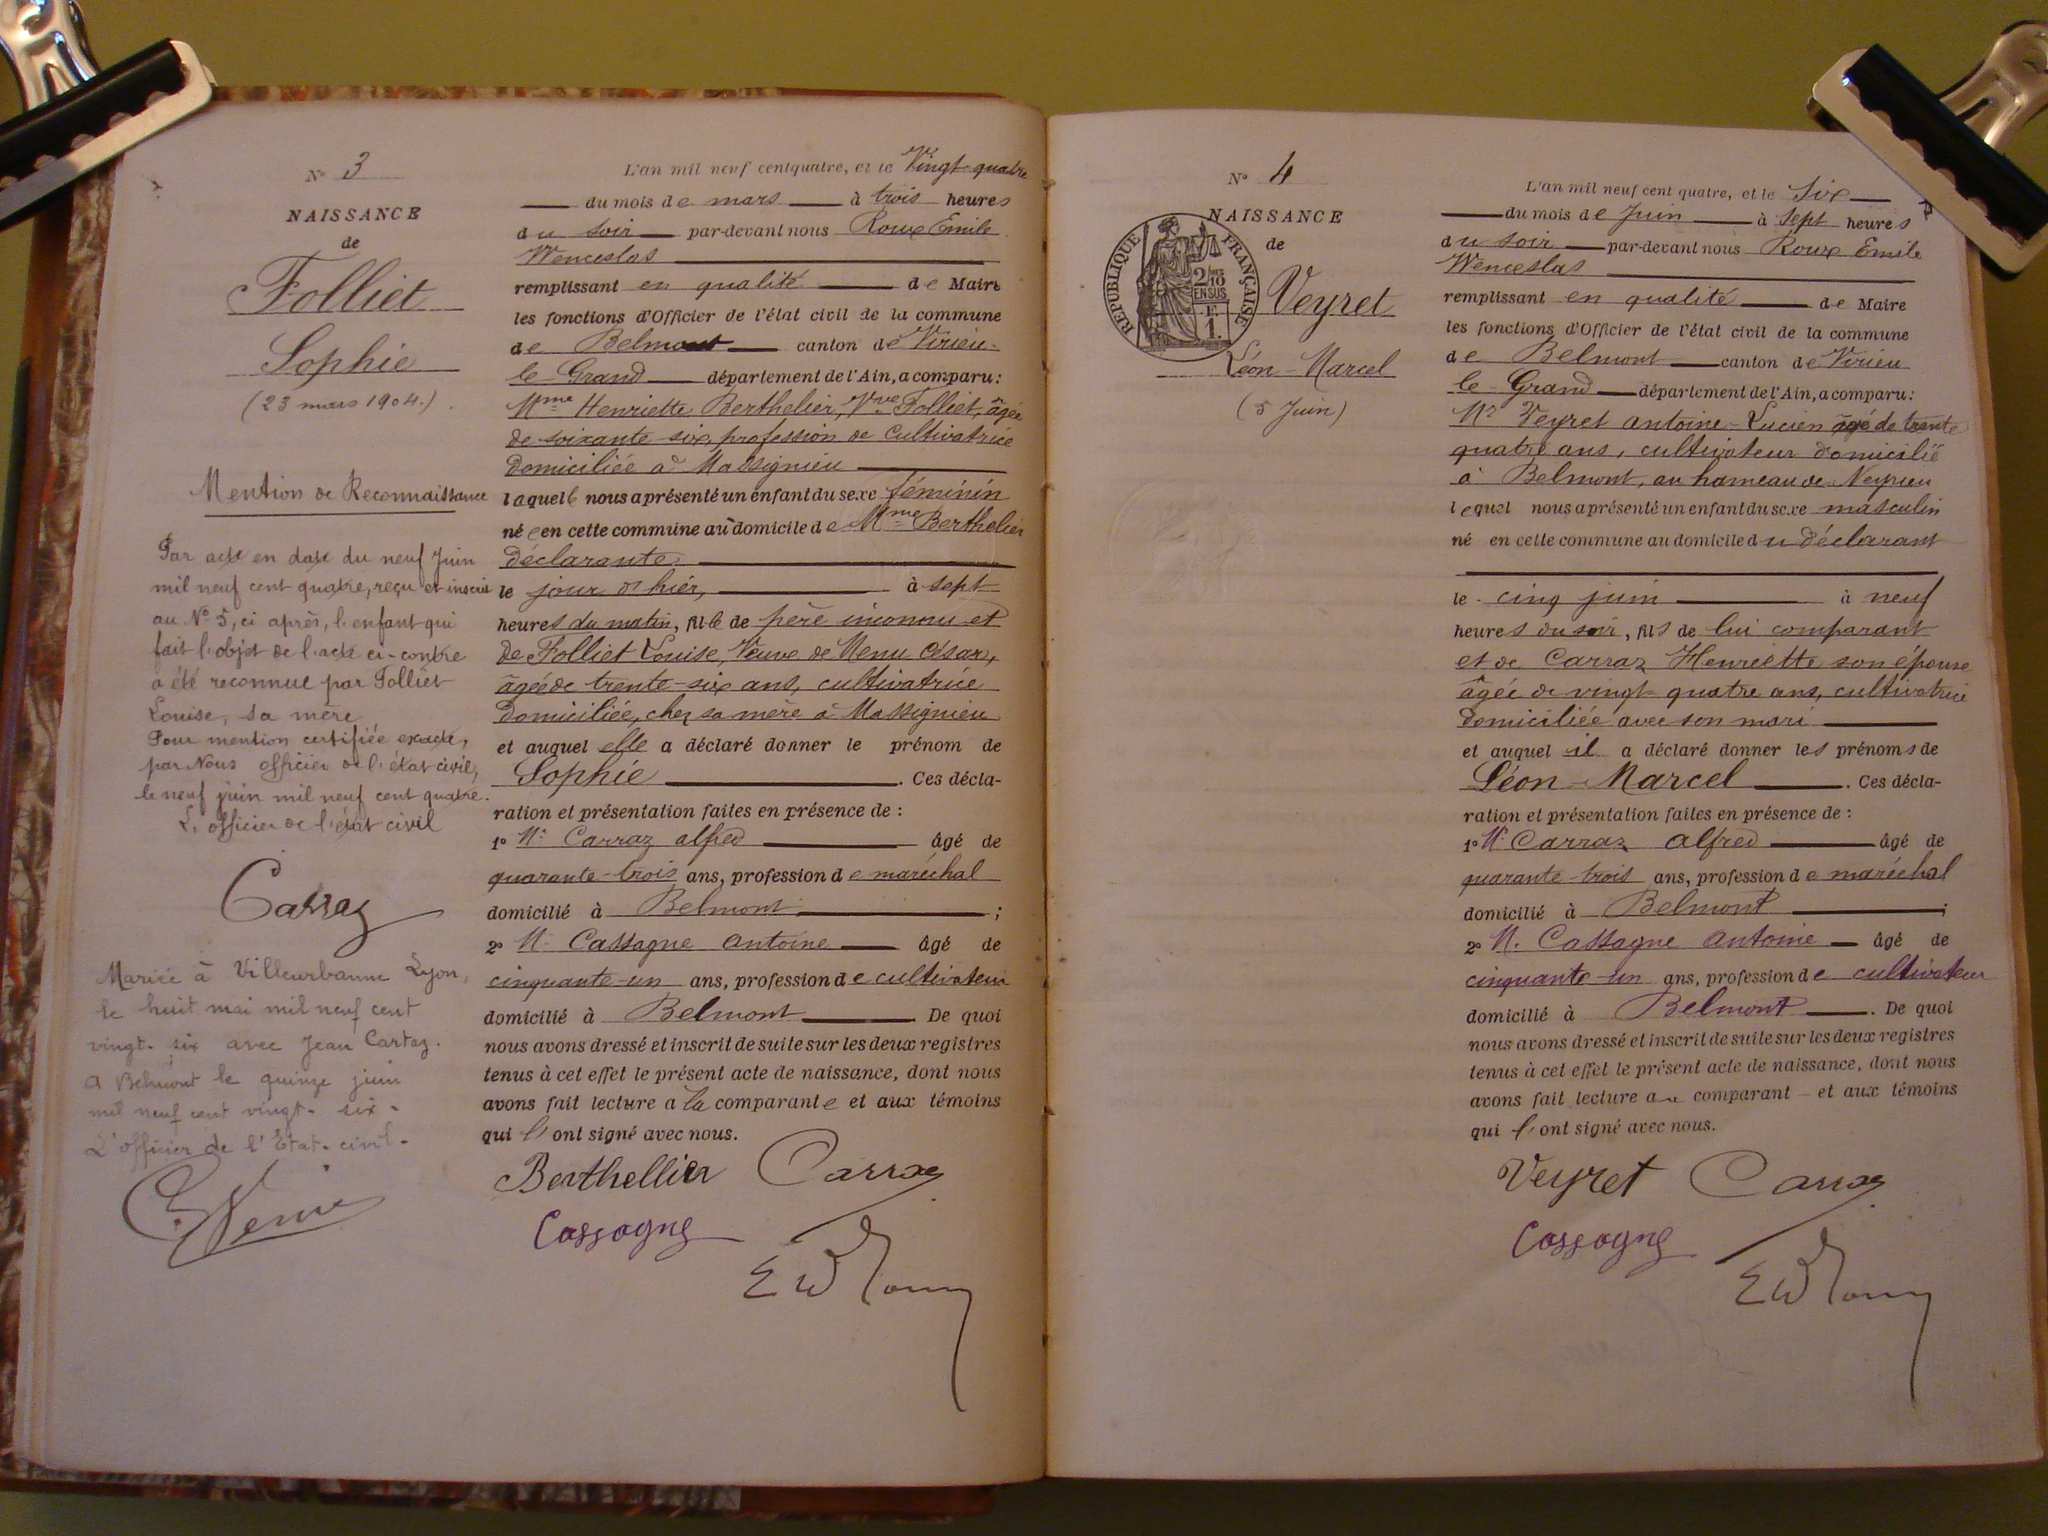 N° 3
NAISSANCE
de
Folliet
Sophie
(23 mars 1904.)
Mention de Reconnaissance
Par acte en date du neuf Juin
mil neuf cent quatre, reçu et inscrit
au N° 5, ci après, l'enfant qui
fait l'objet de l'acte ci-contre
a été reconnue par Folliet
Louise, sa mère
Pour mention certifiée exacte,
par Nous officier de l'état civil,
le neuf juin mil neuf cent quatre.
L'officier de l'état civil
Carraz
Mariée à Villeurbanne Lyon,
le huit mai mil neuf cent
vingt-six avec Jean Cartaz.
A Belmont le quinze juin
mil neuf cent vingt-six-
L'officier de l'Etat-civil-
L'an mil neuf cent quatre, et le Vingt-quatre
du mois de mars à trois heures
du soir par-devant nous Roux Emile
Wenceslas
remplissant en qualité de Maire
les fonctions d'Officier de l'état civil de la commune
de Belmont canton de Virieu-
le-Grand département de l'Ain, a comparu :
Mme Henriette Berthelier, Vve Folliet, âgée
de soixante-six, profession de cultivatrice
domiciliée à Massignieu
laquelle nous a présenté un enfant du sexe féminin
née en cette commune au domicile de Mme Berthelier
déclarante
le jour d'hier, à sept
heures du matin, fille de père inconnu et
de Folliet Louise, Veuve de Menu César,
âgée de trente-six ans, cultivatrice
domiciliée, chez sa mère à Massignieu
et auquel elle a déclaré donner le prénom de
Sophie. Ces décla-
ration et présentation faites en présence de :
1° Mr Carraz alfred âgé de
quarante-trois ans, profession de maréchal
domicilié à Belmont ;
2° M. Cassagne antoine âgé de
cinquante-un ans, profession de cultivateur
domicilié à Belmont De quoi
nous avons dressé et inscrit de suite sur les deux registres
tenus à cet effet le présent acte de naissance, dont nous
avons fait lecture a la comparante et aux témoins
qui l'ont signé avec nous.
Berthellier Carraz
Cassagne
E W Roux
N° 4
NAISSANCE
de
REPUBLIQUE FRANÇAISE
2/10 EN SUS
F. 1
Veyret
Léon-Marcel
(5 Juin)
L'an mil neuf cent quatre, et le Six
du mois de Juin à sept heures
du soir par-devant nous Roux Emile
Wenceslas
remplissant en qualité de Maire
les fonctions d'Officier de l'état civil de la commune
de Belmont canton de Virieu
le-Grand département de l'Ain, a comparu :
Mr Veyret antoine-Lucien âgé de trente
quatre ans, cultivateur domicilié
à Belmont, au hameau de Neyrieu
lequel nous a présenté un enfant du sexe masculin
né en cette commune au domicile du déclarant
le cinq juin à neuf
heures du soir, fils de lui comparant
et de Carraz Henriette son épouse
âgée de vingt quatre ans, cultivatrice
domiciliée avec son mari
et auquel il a déclaré donner les prénoms de
Léon-Marcel. Ces décla-
ration et présentation faites en présence de :
1° Mr Carraz alfred âgé de
quarante trois ans, profession de maréchal
domicilié à Belmont ;
2° M. Cassagne antoine âgé de
cinquante-un ans, profession de cultivateur
domicilié à Belmont. De quoi
nous avons dressé et inscrit de suite sur les deux registres
tenus à cet effet le présent acte de naissance, dont nous
avons fait lecture au comparant et aux témoins
qui l'ont signé avec nous.
Veyret Carraz
Cassagne
E W Roux